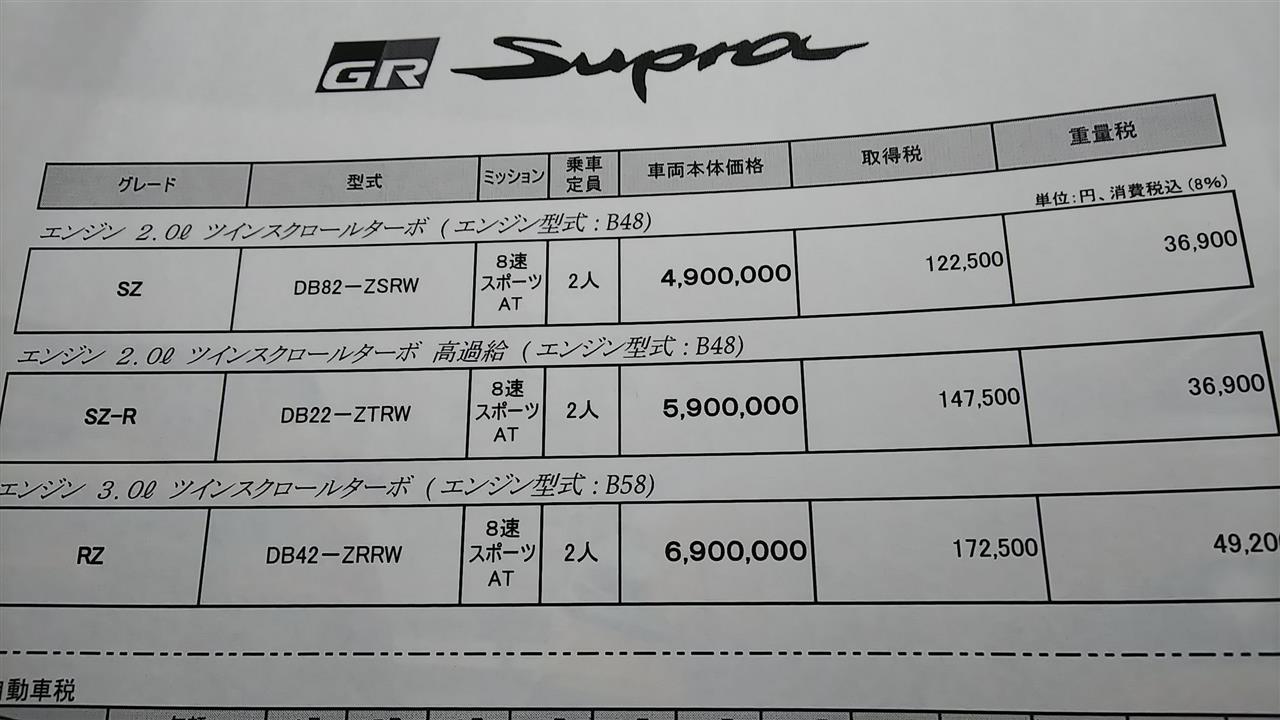 GR Supra
グレード 型式 ミッション 乗車定員 車両本体価格 取得税 重量税
単位:円、消費税込(8%)
エンジン 2.0ℓ ツインスクロールターボ (エンジン型式:B48)
SZ DB82-ZSRW 8速スポーツAT 2人 4,900,000 122,500 36,900
エンジン 2.0ℓ ツインスクロールターボ 高過給 (エンジン型式:B48)
SZ-R DB22-ZTRW 8速スポーツAT 2人 5,900,000 147,500 36,900
エンジン 3.0ℓ ツインスクロールターボ (エンジン型式:B58)
RZ DB42-ZRRW 8速スポーツAT 2人 6,900,000 172,500 49,20
自動車税